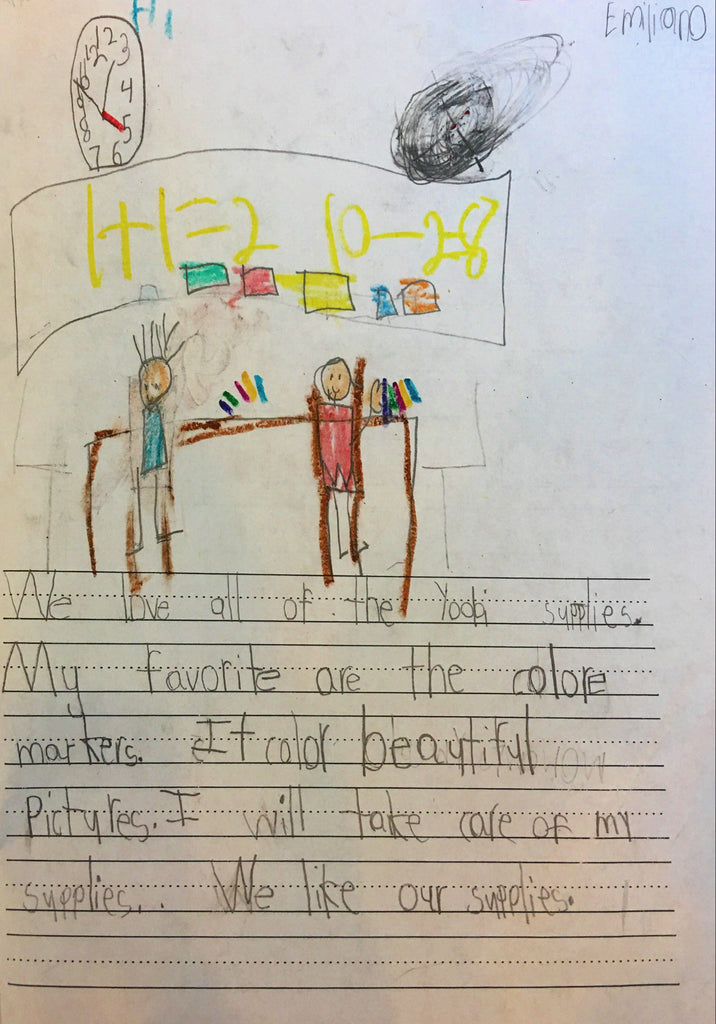 Emiliano
1+1=2 10-2=8
We love all of the Yoobi supplies.
My favorite are the colore
markers. It color beautiful
Pictures. I will take care of my
supplies.. We like our supplies.